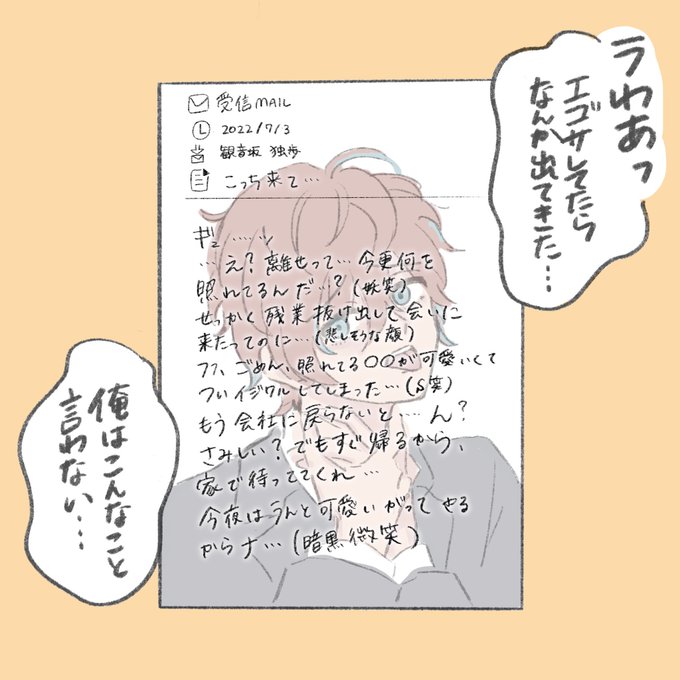 うわあっ
エゴサしてたら
なんか出てきた…
受信MAIL
2022/7/3
観音坂 独歩
こっち来て…
ギュ……ッ
…え?離せって…今更何を
照れてるんだ…?(妖笑)
せっかく残業抜け出して会いに
来たってのに…(悲しそうな顔)
フフ、ごめん、照れてる〇〇が可愛いくて
ついイジワルしてしまった…(S笑)
もう会社に戻らないと…ん?
さみしい?でもすぐ帰るから、
家で待っててくれ…
今夜はうんと可愛いがってやる
からナ…(暗黒微笑)
俺はこんなこと
言わない…